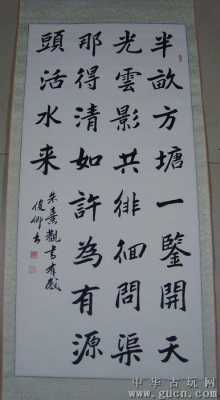 半畝方塘一鑒開天
光雲影共徘徊問渠
那得清如許為有源
頭活水来
朱熹觀書有感
俊卿书
中华古玩网
www.gucn.com